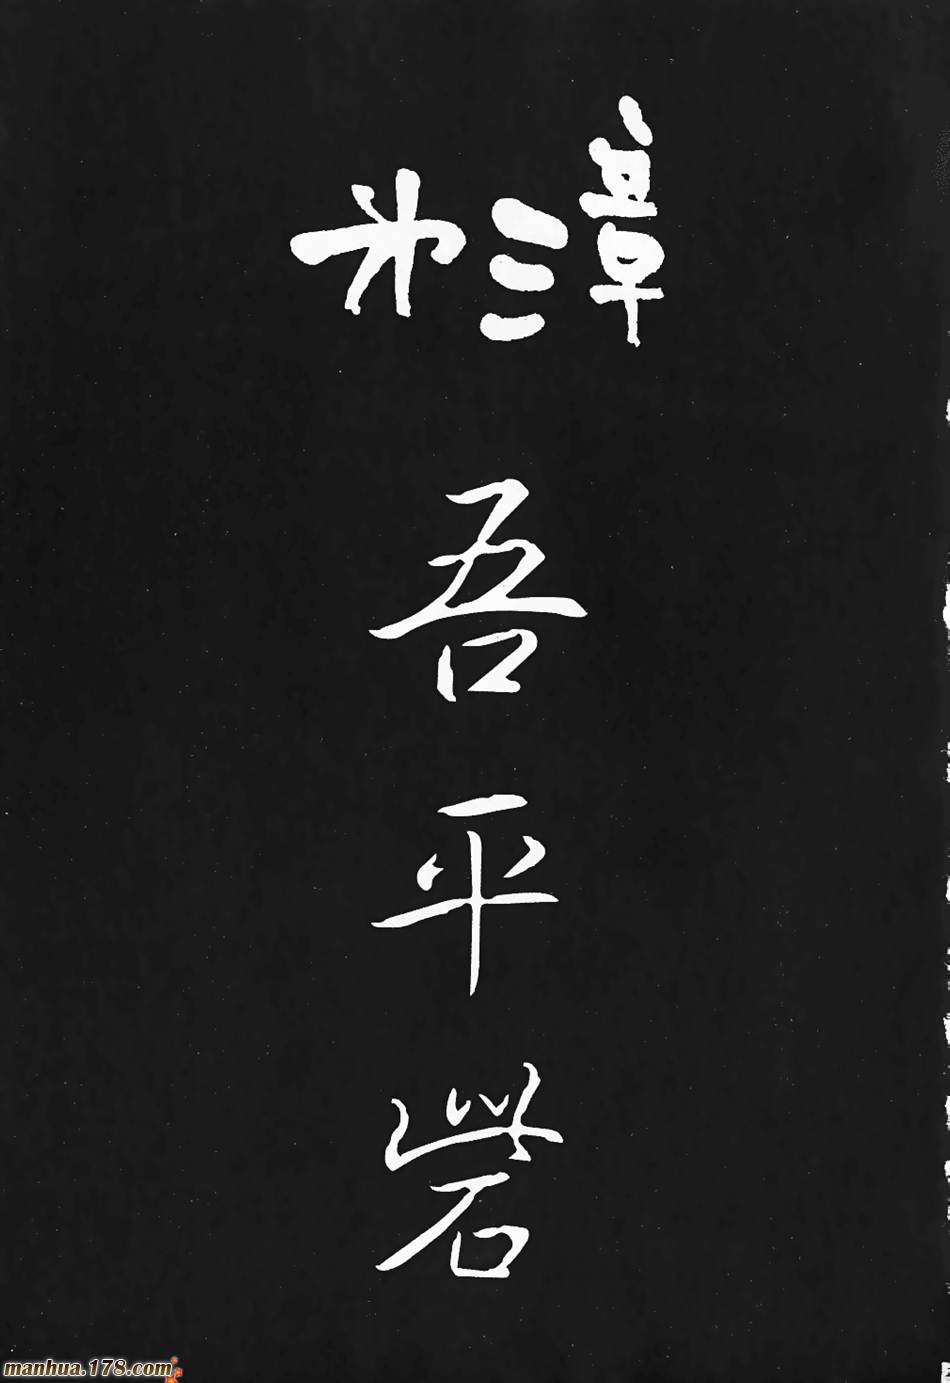 第三章
吾平岩
manhua.178.com